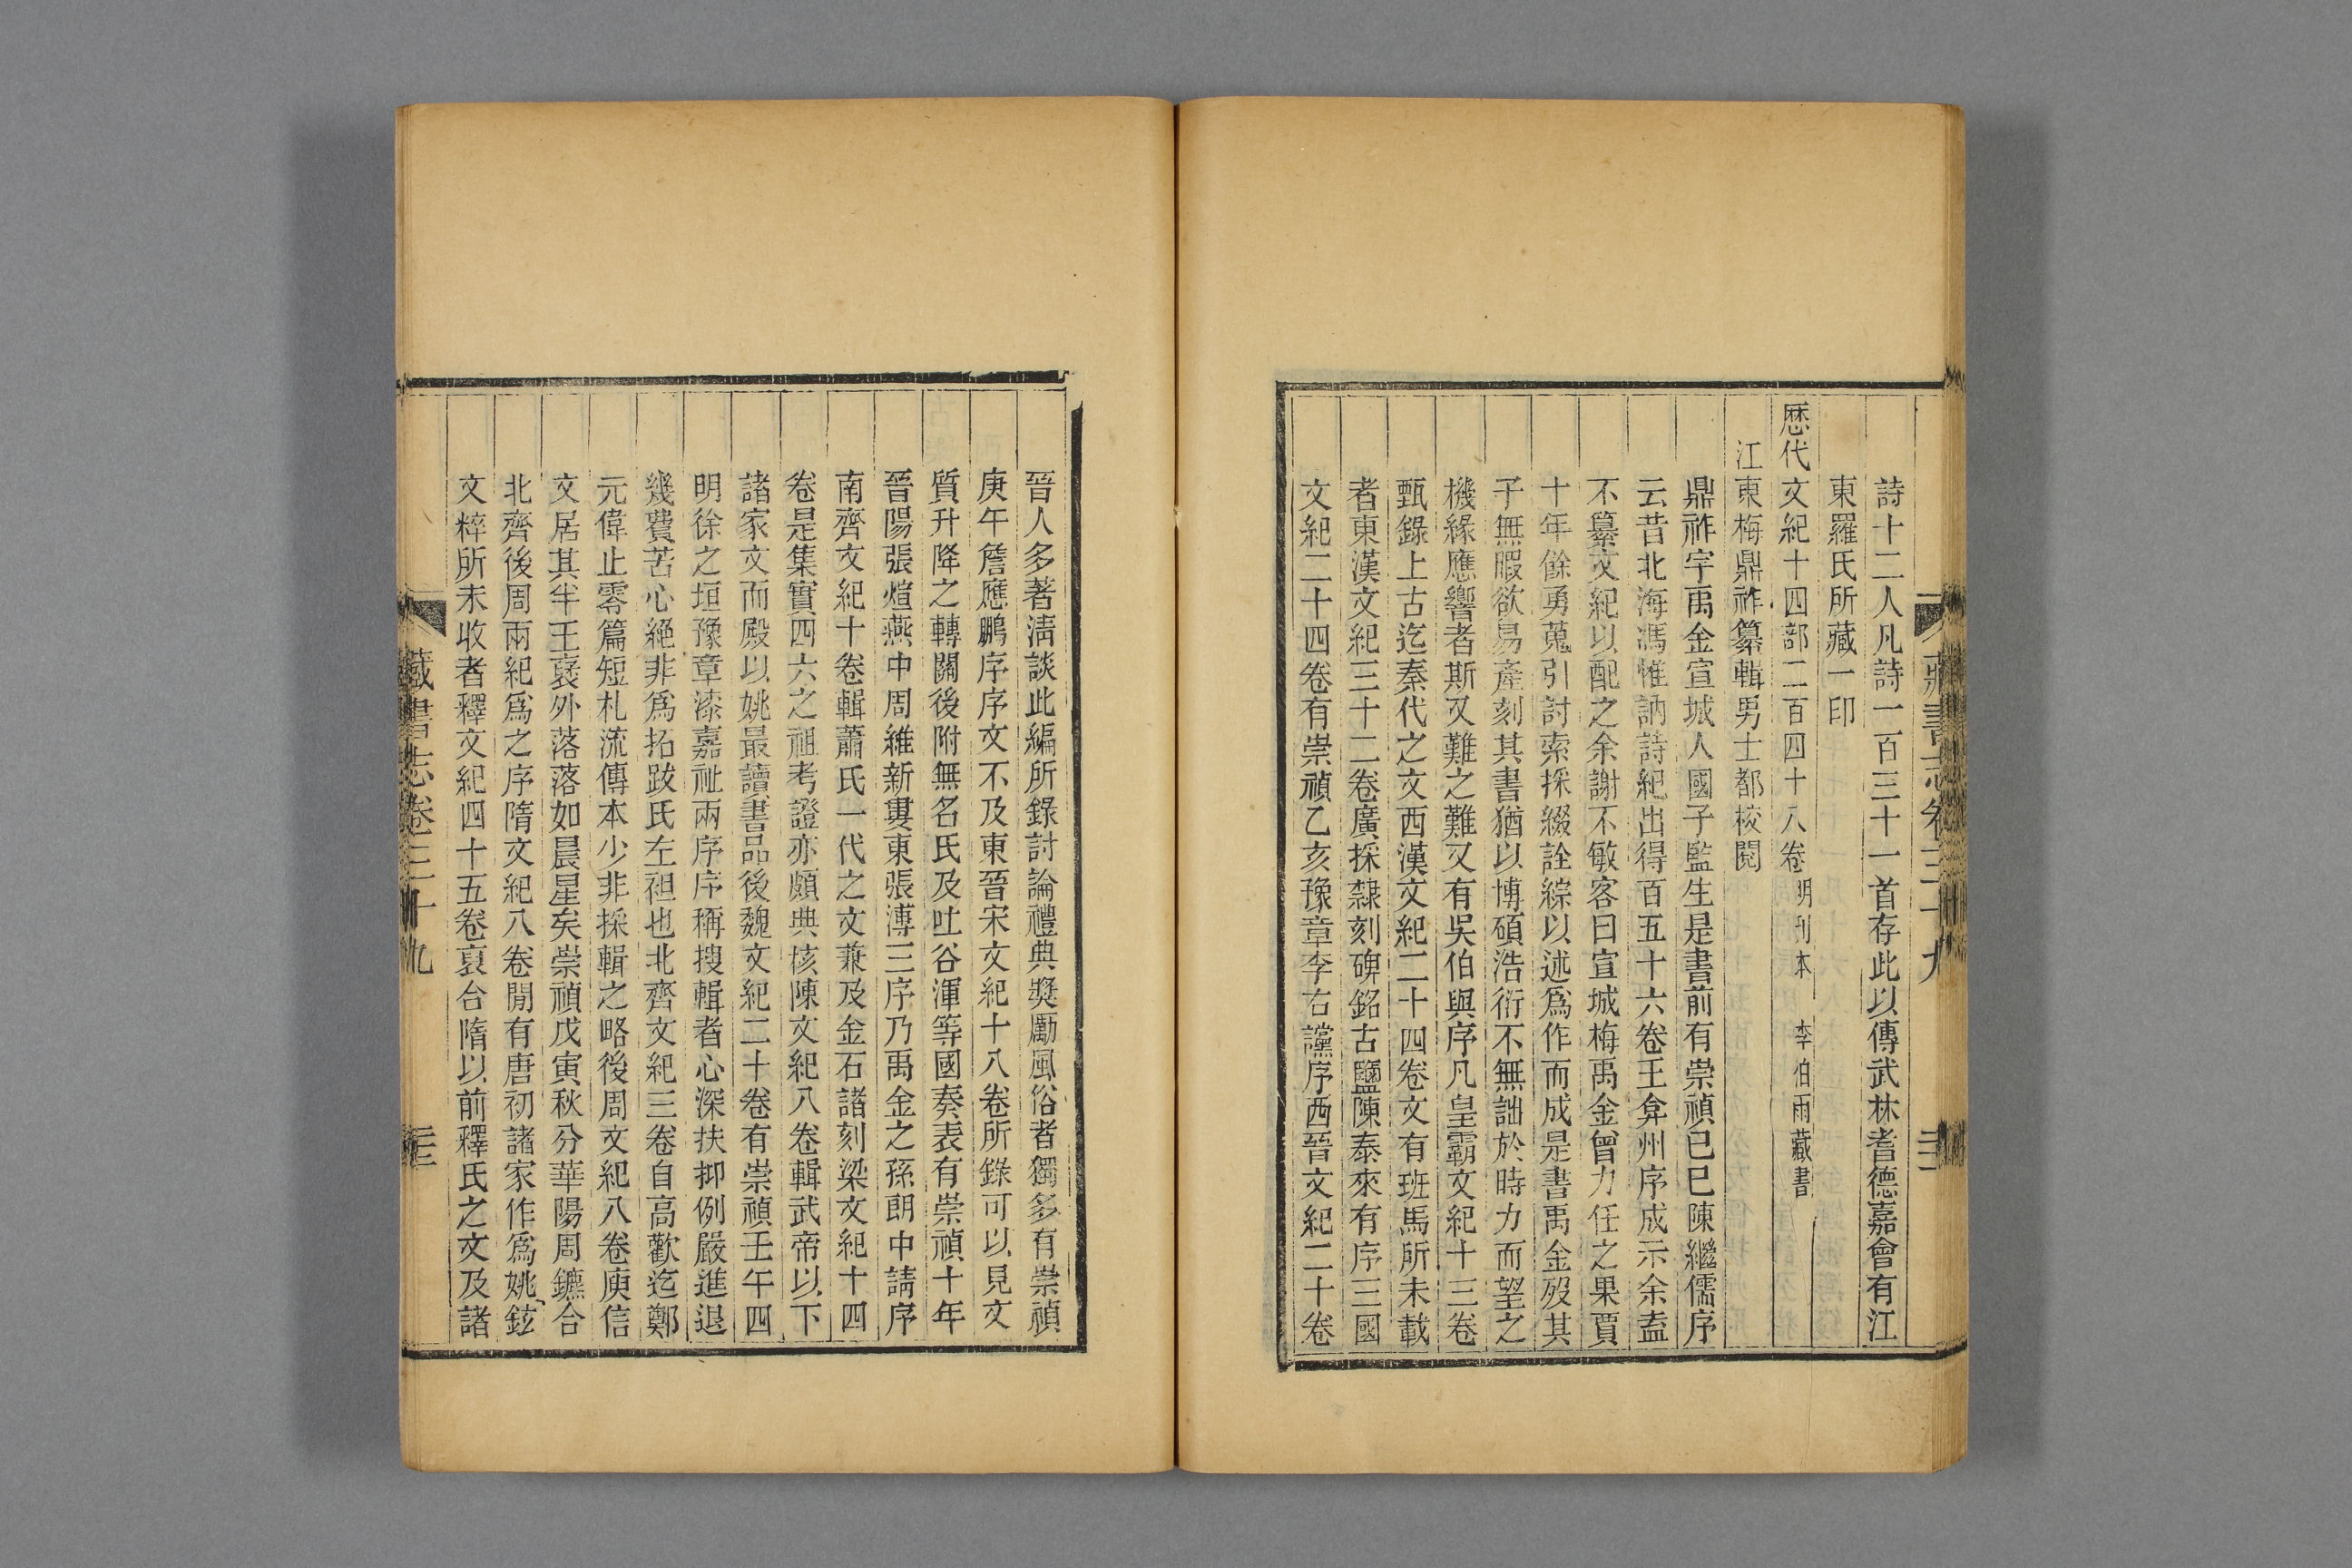 藏書志卷三十九
詩十二人凡詩一百三十一首存此以傳武林耆德嘉會有江
東羅氏所藏一印
歷代文紀十四部二百四十八卷 明刊本 李伯雨藏書
江東梅鼎祚纂輯男士都校閱
鼎祚字禹金宣城人國子監生是書前有崇禎己巳陳繼儒序
云昔北海馮惟訥詩紀出得百五十六卷王弇州序成示余盍
不纂文紀以配之余謝不敏客曰宣城梅禹金曾力任之果賈
十年餘勇蒐引討索採綴詮綜以述爲作而成是書禹金歿其
子無暇欲易產刻其書猶以博碩浩衍不無詘於時力而望之
機緣應響者斯又難之難又有吳伯與序凡皇霸文紀十三卷
甄錄上古迄秦代之文西漢文紀二十四卷文有班馬所未載
者東漢文紀三十二卷廣採隸刻碑銘古鹽陳泰來有序三國
文紀二十四卷有崇禎乙亥豫章李右讜序西晉文紀二十卷
晉人多著淸談此編所錄討論禮典奬勵風俗者獨多有崇禎
庚午詹應鵬序序文不及東晉宋文紀十八卷所錄可以見文
質升降之轉關後附無名氏及吐谷渾等國奏表有崇禎十年
晉陽張煊燕中周維新婁東張溥三序乃禹金之孫朗中請序
南齊文紀十卷輯蕭氏一代之文兼及金石諸刻梁文紀十四
卷是集實四六之祖考證亦頗典核陳文紀八卷輯武帝以下
諸家文而殿以姚最讀書品後魏文紀二十卷有崇禎壬午四
明徐之垣豫章漆嘉祉兩序序稱搜輯者心深扶抑例嚴進退
幾費苦心絕非爲拓跋氏左袒也北齊文紀三卷自高歡迄鄭
元偉止零篇短札流傳本少非採輯之略後周文紀八卷庾信
文居其半王襃外落落如晨星矣崇禎戊寅秋分華陽周鑣合
北齊後周兩紀爲之序隋文紀八卷間有唐初諸家作爲姚鉉
文粹所未收者釋文紀四十五卷裒合隋以前釋氏之文及諸
藏書志卷三十九